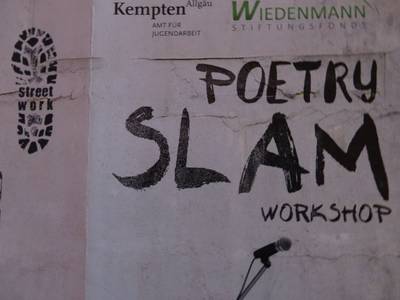 Kempten Allgäu
AMT FÜR
JUGENDARBEIT
WIEDENMANN
STIFTUNGSFONDS
Street
work
POETRY
SLAM
WORKSHOP